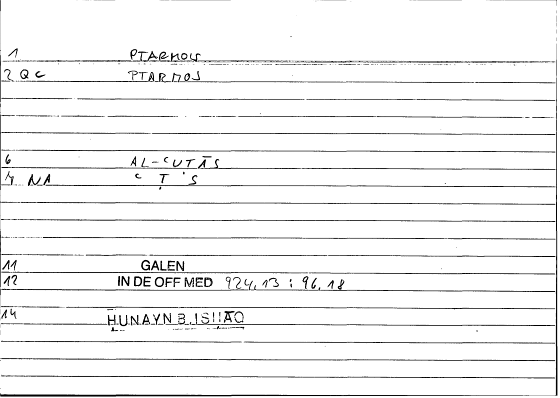 1 PTARMOS
2 QC PTARMOS
6 AL-ʿUṬĀS
4 NA ʿ Ṭ ʾ S
11 GALEN
12 IN DE OFF MED 924,13 : 96,18
14 ḤUNAYN B. ISḤĀQ